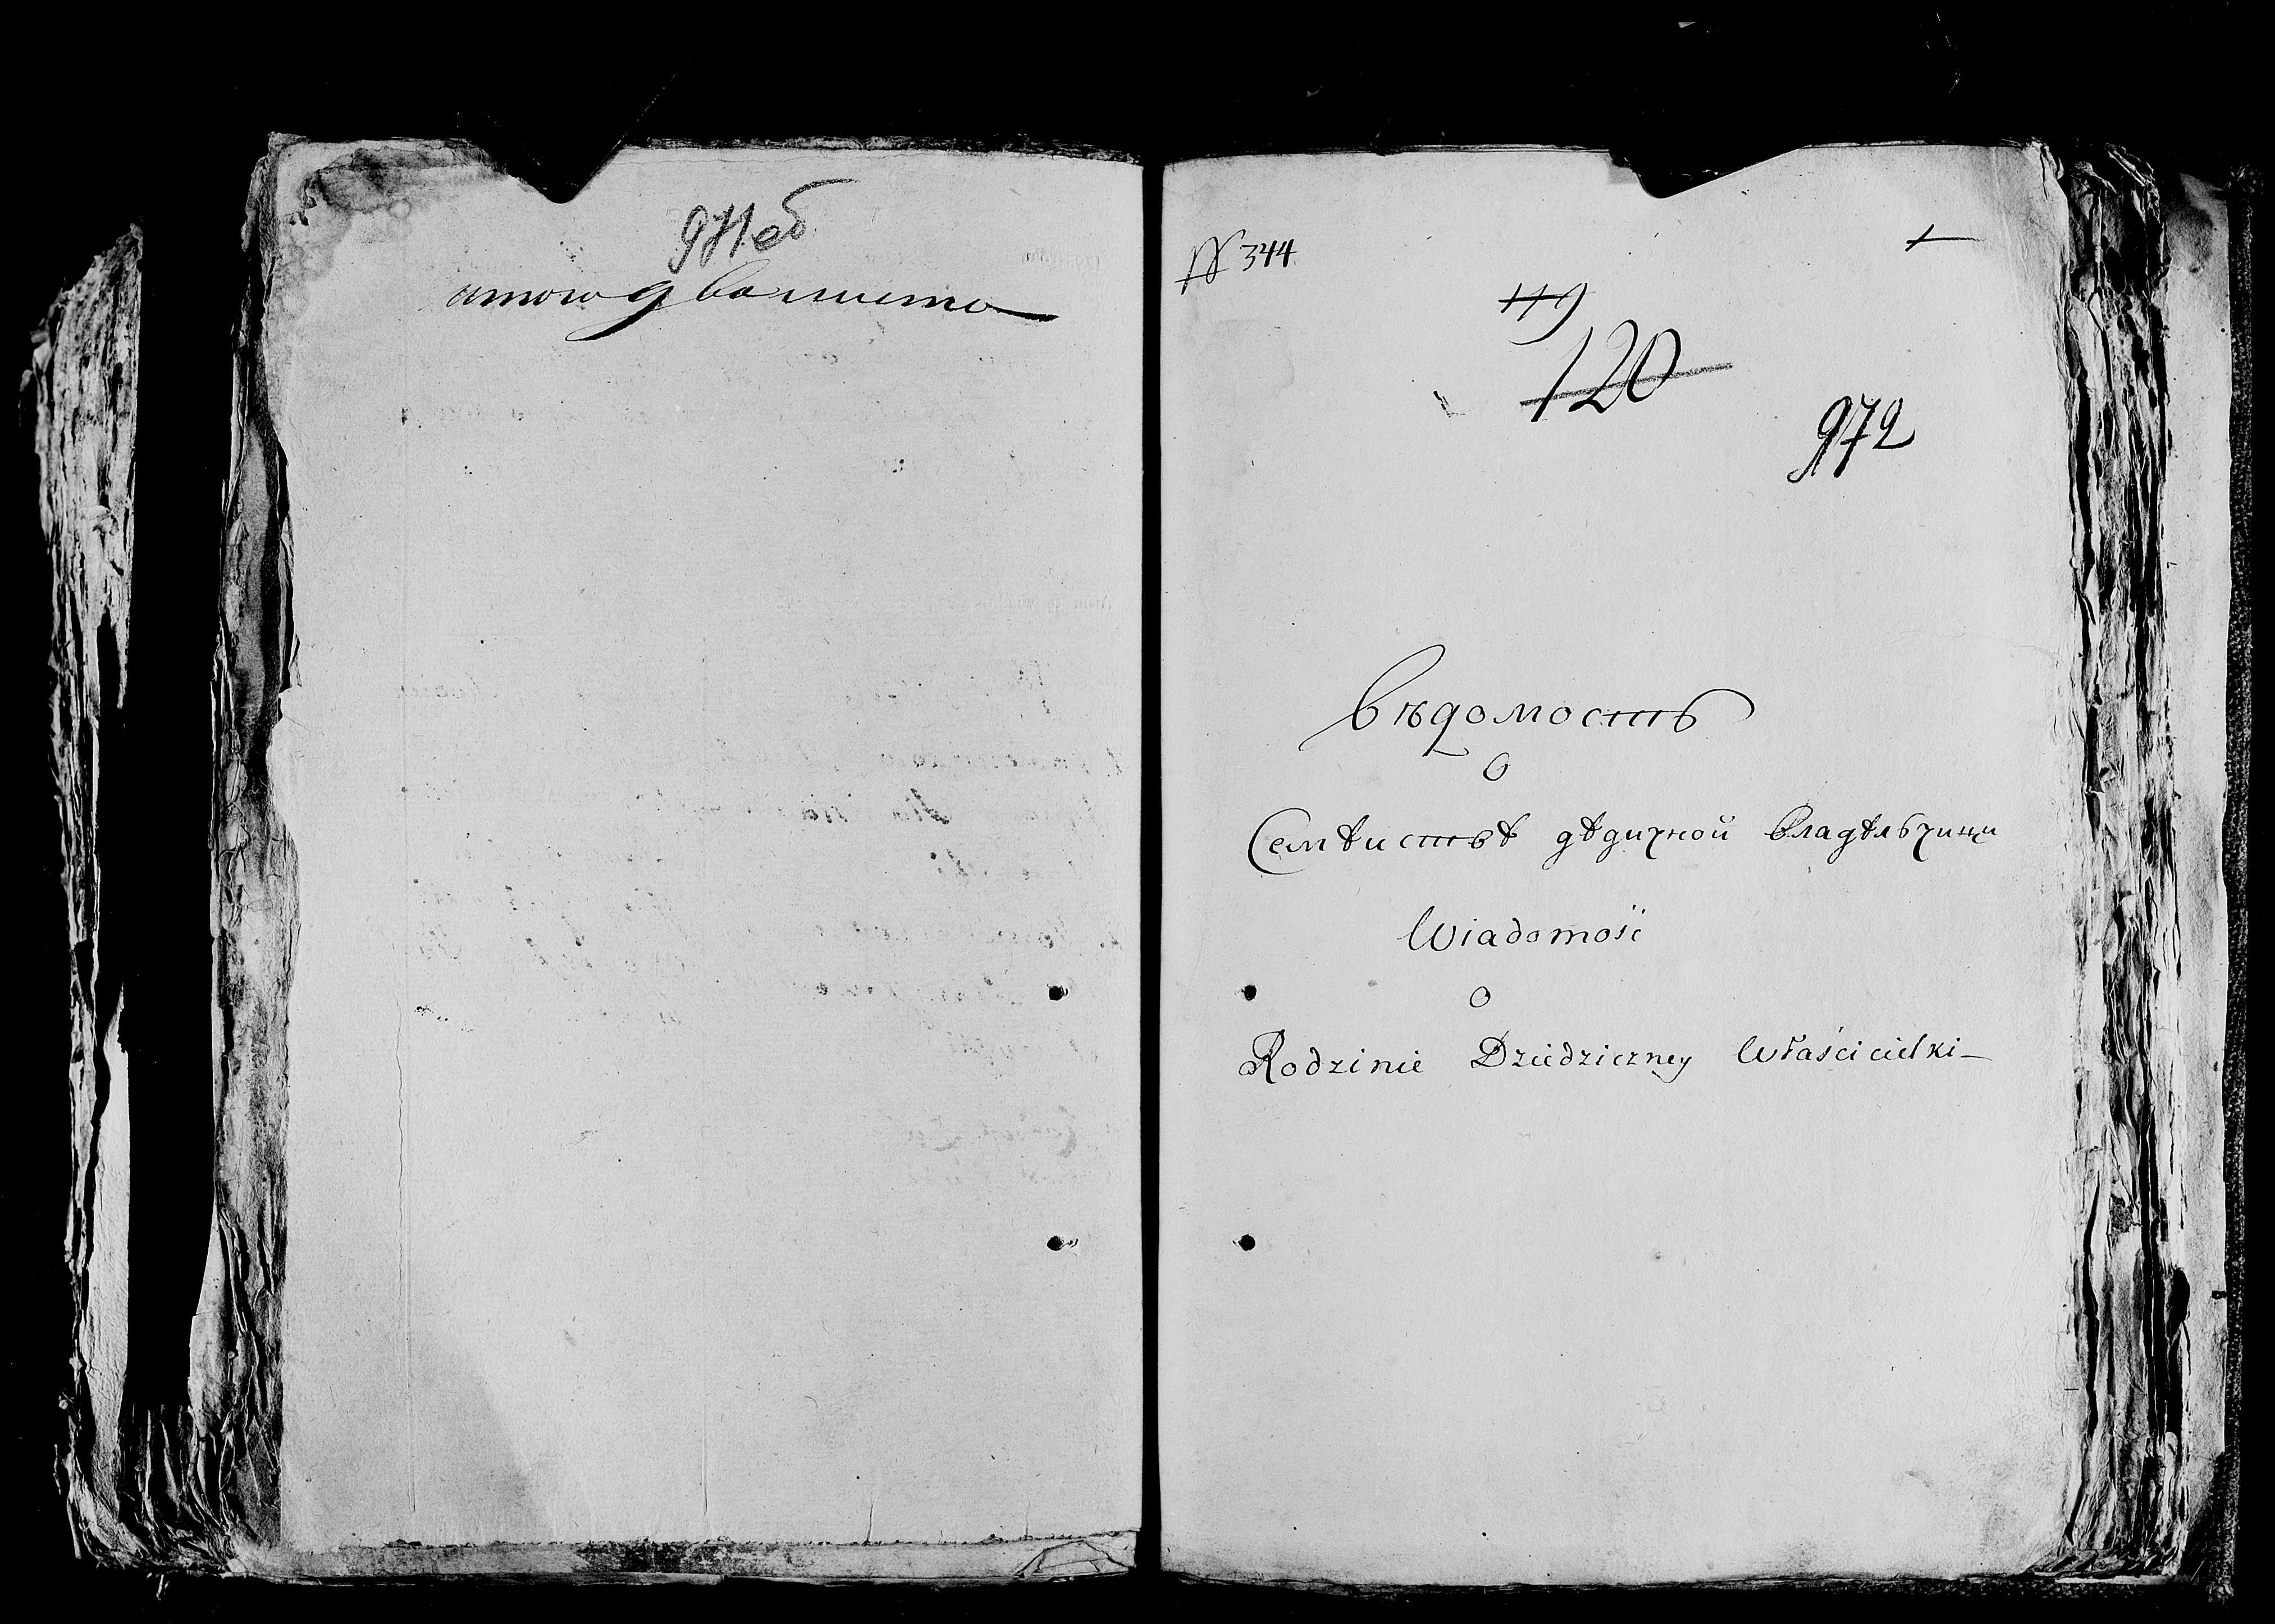 971 об
№ 344
119
120
972
Вѣдомость
О
Семѣиствѣ дѣдичной владѣльчицы
Wiadomość
O
Rodzinie Dziedziczney Właścicielki –